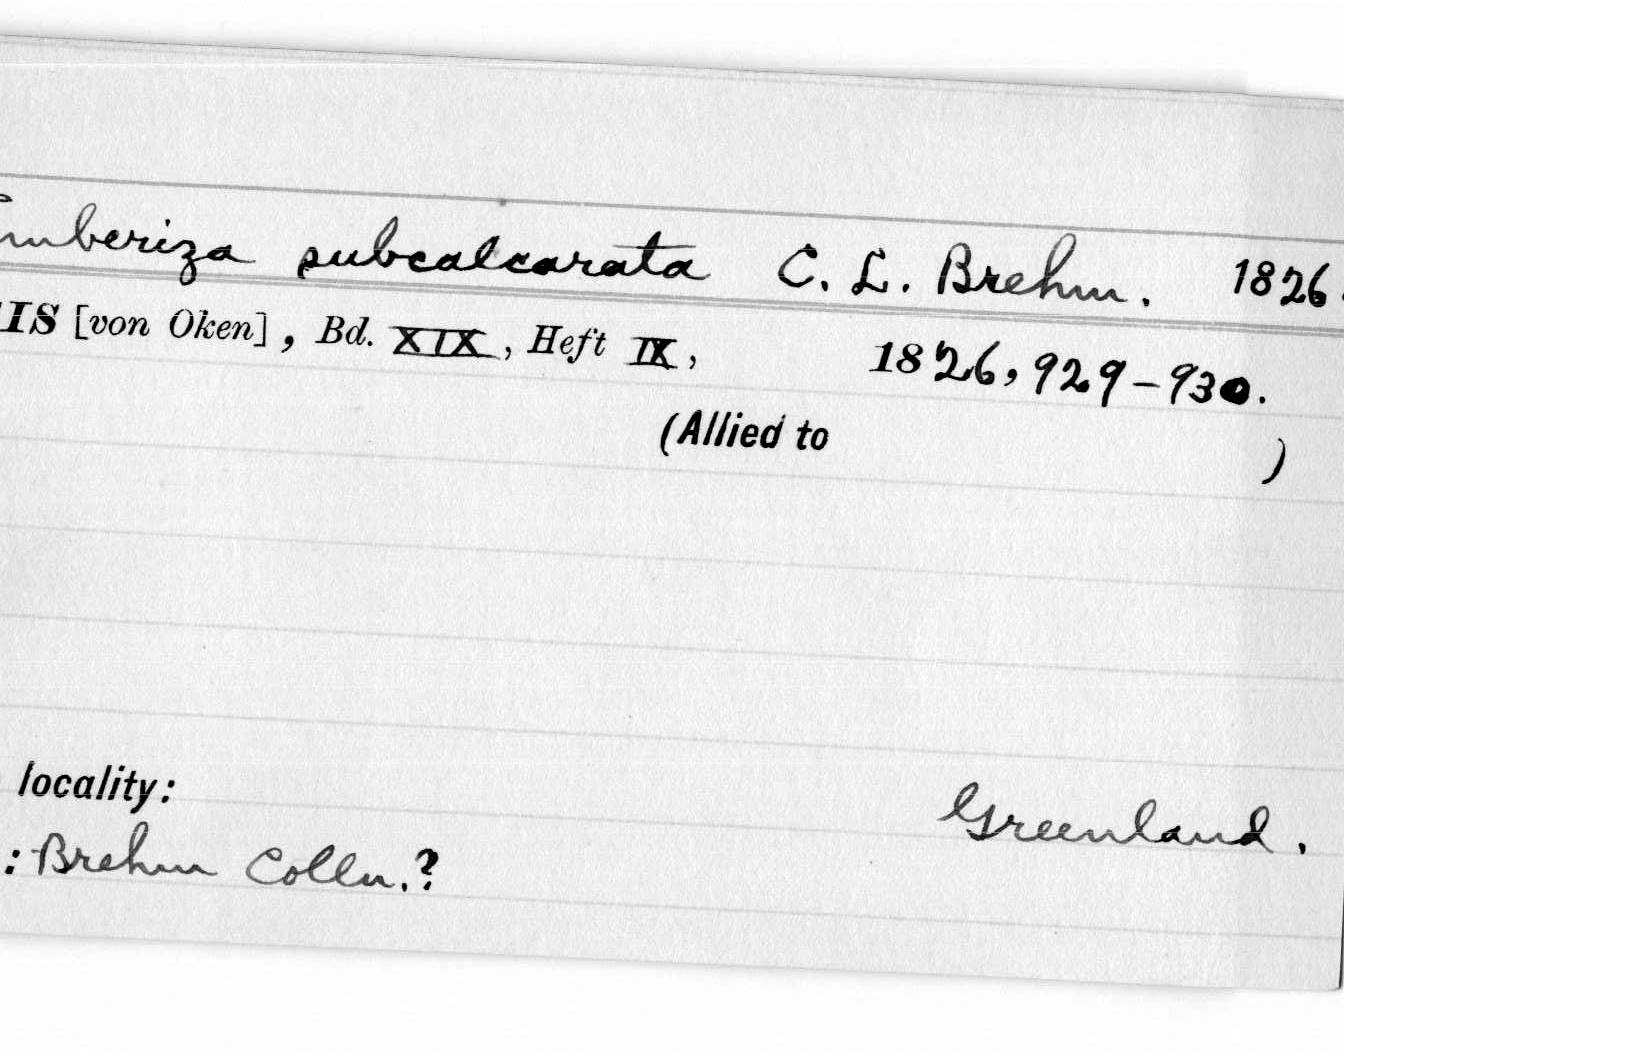 Emberiza subcalcarata C. L. Brehm. 1826.
IS [von Oken], Bd. XIX, Heft IX, 1826, 929–930.
(Allied to )
locality: Greenland.
: Brehm Colln.?